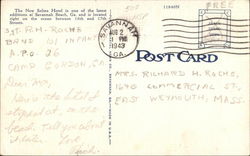 The New Solms Hotel is one of the latest
additions at Savannah Beach, Ga. and is located
right on the ocean between 16th and 17th
Streets.
FREE
SAVANNAH
AUG 2
9 PM
1943
GA.
POST CARD
Sgt. R.H. Roche
Band 01 Infantry
A.P.O.
Camp Gordon, Ga.
Mrs. Richard H. Roche,
1640 Commercial St.
East Weymouth Mass
Dear Mo,
the hotel
stopped at on the
beach. Tell you about
it later. Love